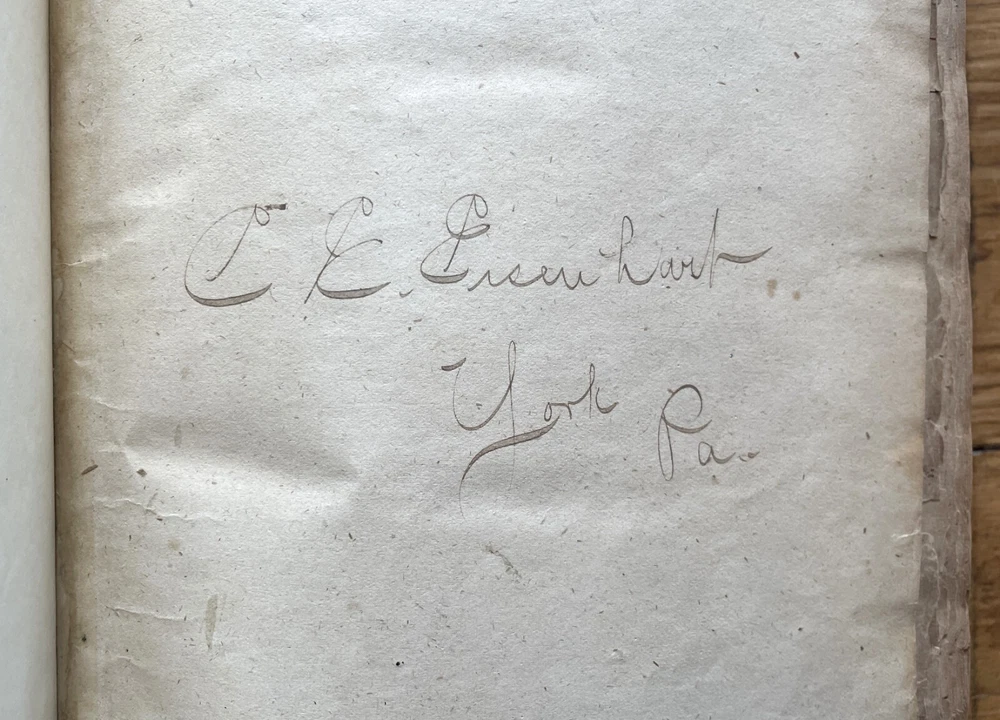 C E. Eisenhart
York Pa.